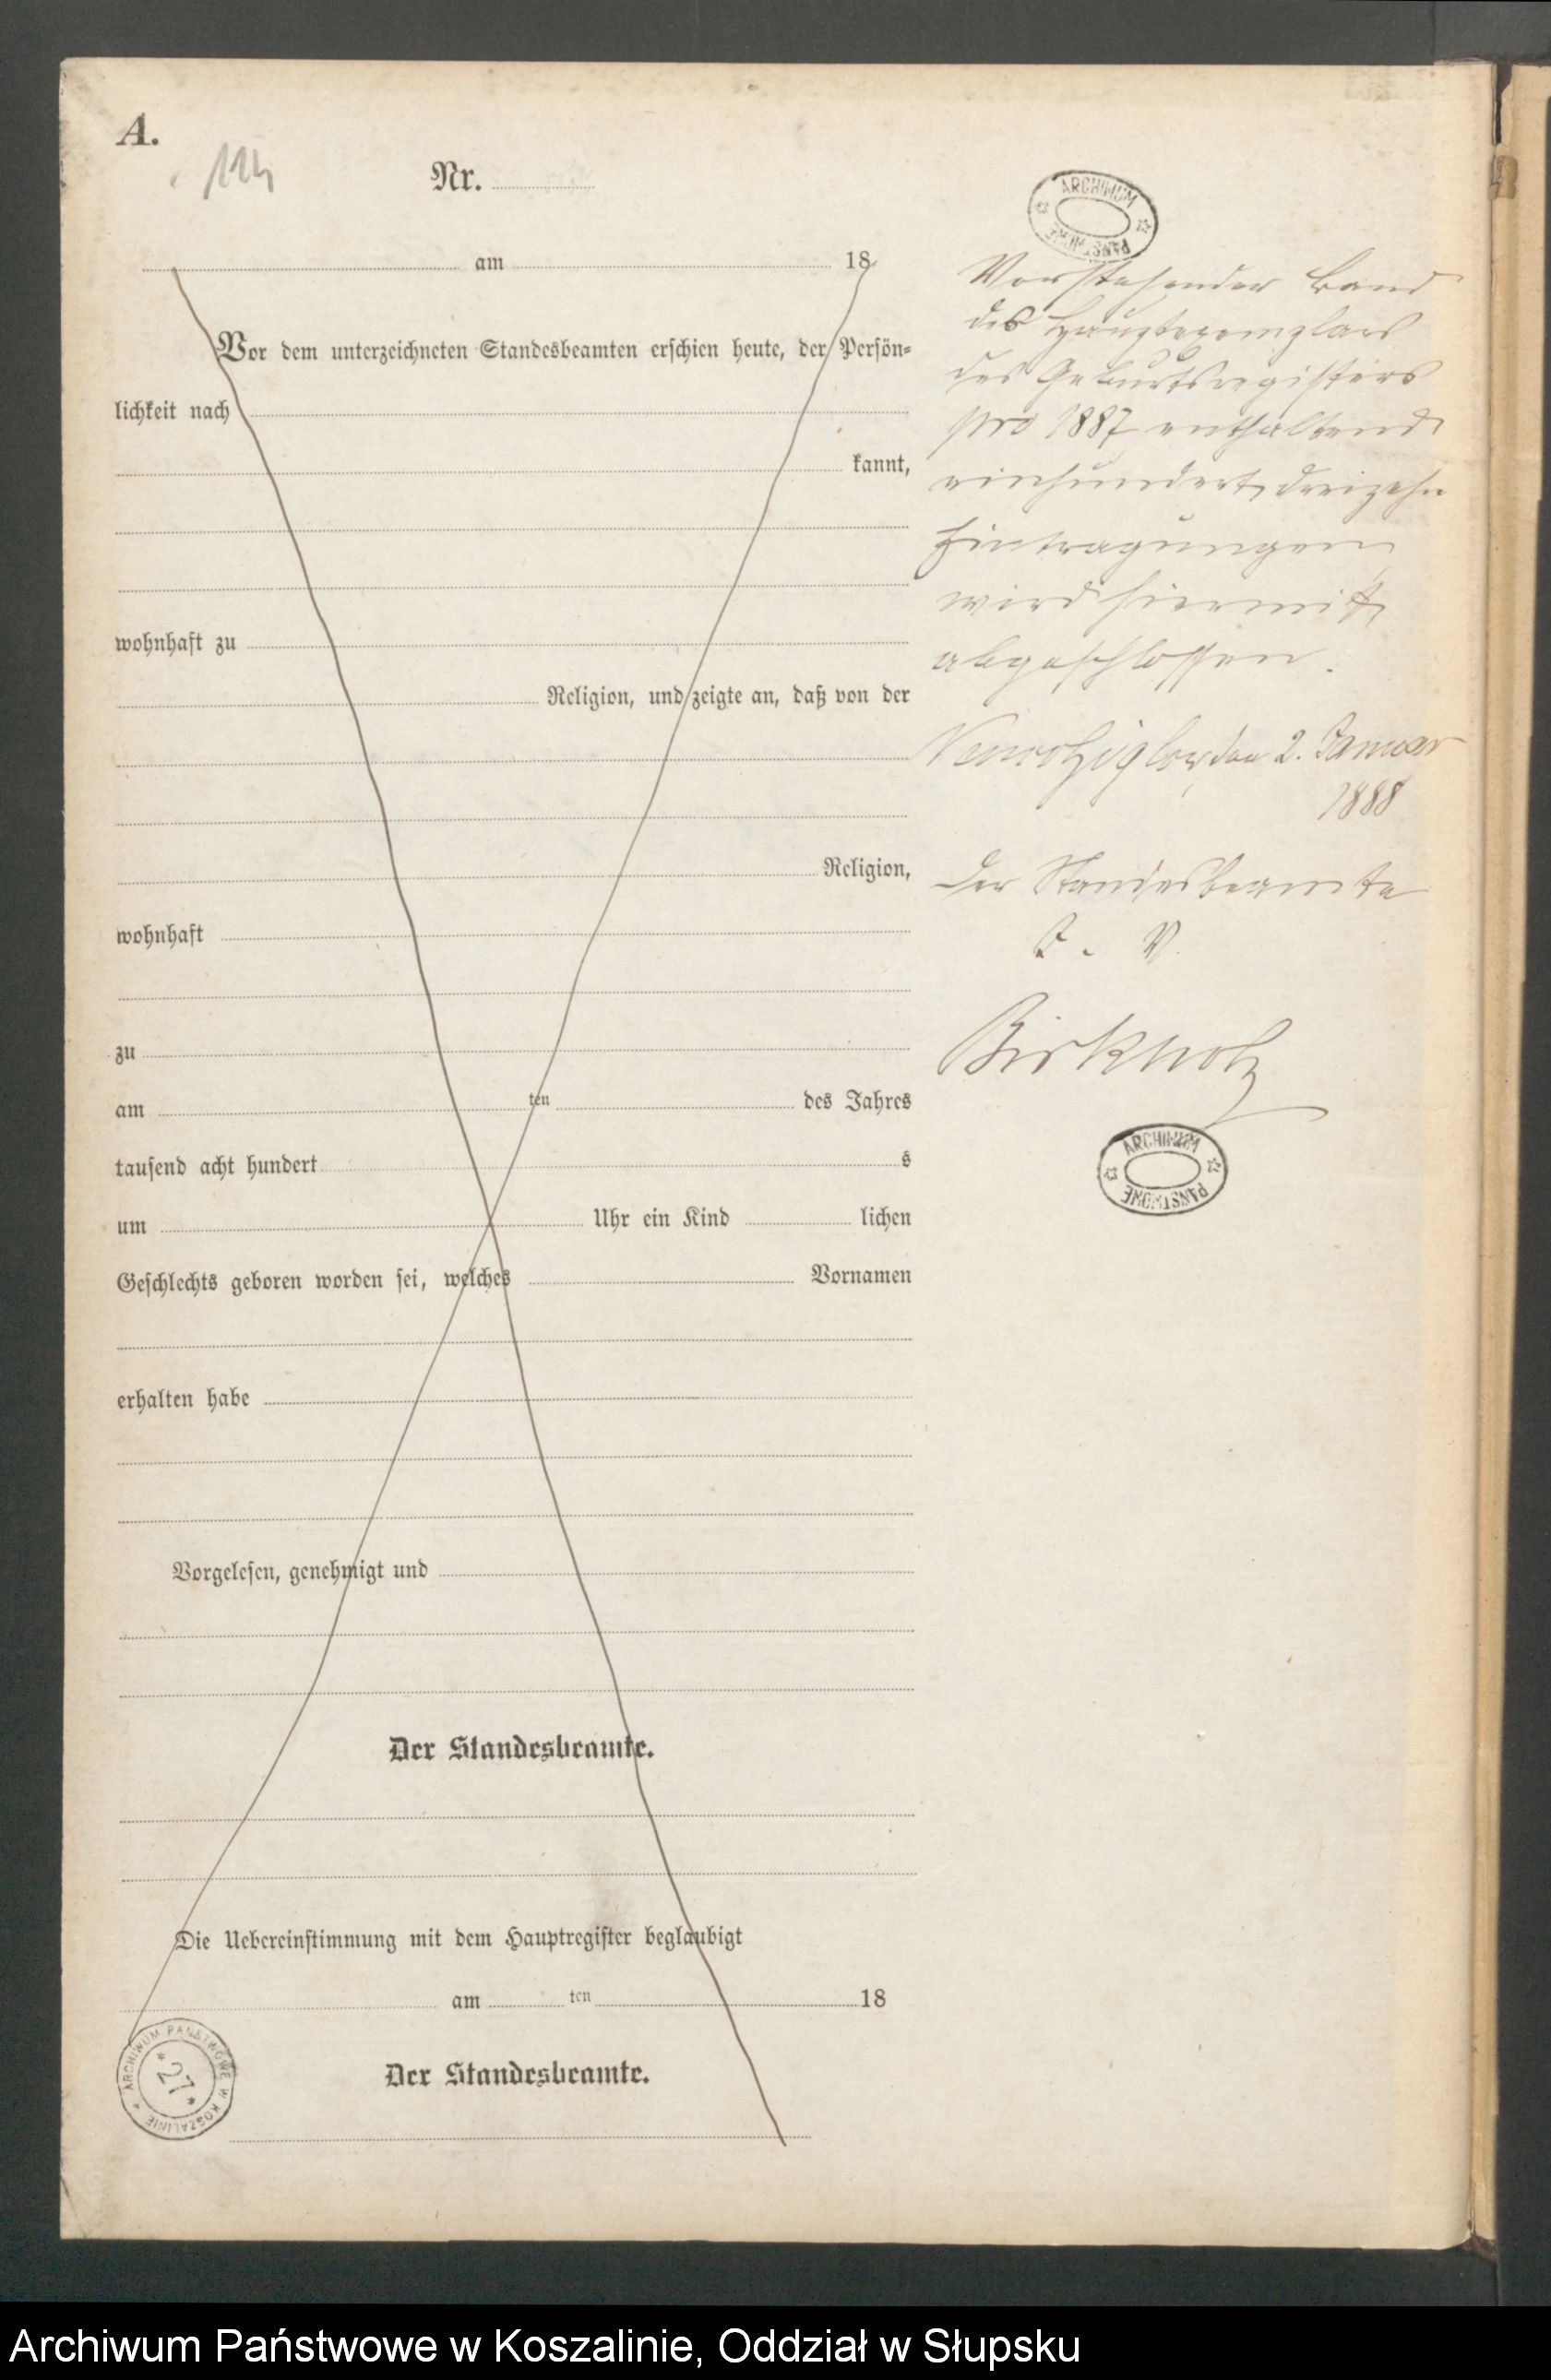 A.
114
Nr.
am 18
Vor dem unterzeichneten Standesbeamten erschien heute, der Persön-
lichkeit nach
kannt,
wohnhaft zu
Religion, und zeigte an, daß von der
Religion,
wohnhaft
zu
am ten des Jahres
tausend acht hundert s
um Uhr ein Kind lichen
Geschlechts geboren worden sei, welches Vornamen
erhalten habe
Vorgelesen, genehmigt und
Der Standesbeamte.
Die Uebereinstimmung mit dem Hauptregister beglaubigt
am ten 18
Der Standesbeamte.
ARCHIWUM PAŃSTWOWE W KOSZALINIE
* 27 *
ARCHIWUM
PAŃSTWOWE
Vorstehender Band
des Hauptexemplars
des Geburtsregisters
pro 1887 enthaltend
einhundert dreizehn
Eintragungen
wird hiermit
abgeschlossen.
den 2. Januar
1888
Der Standesbeamte
J. V.
Birkholz
ARCHIWUM
PAŃSTWOWE
Archiwum Państwowe w Koszalinie, Oddział w Słupsku